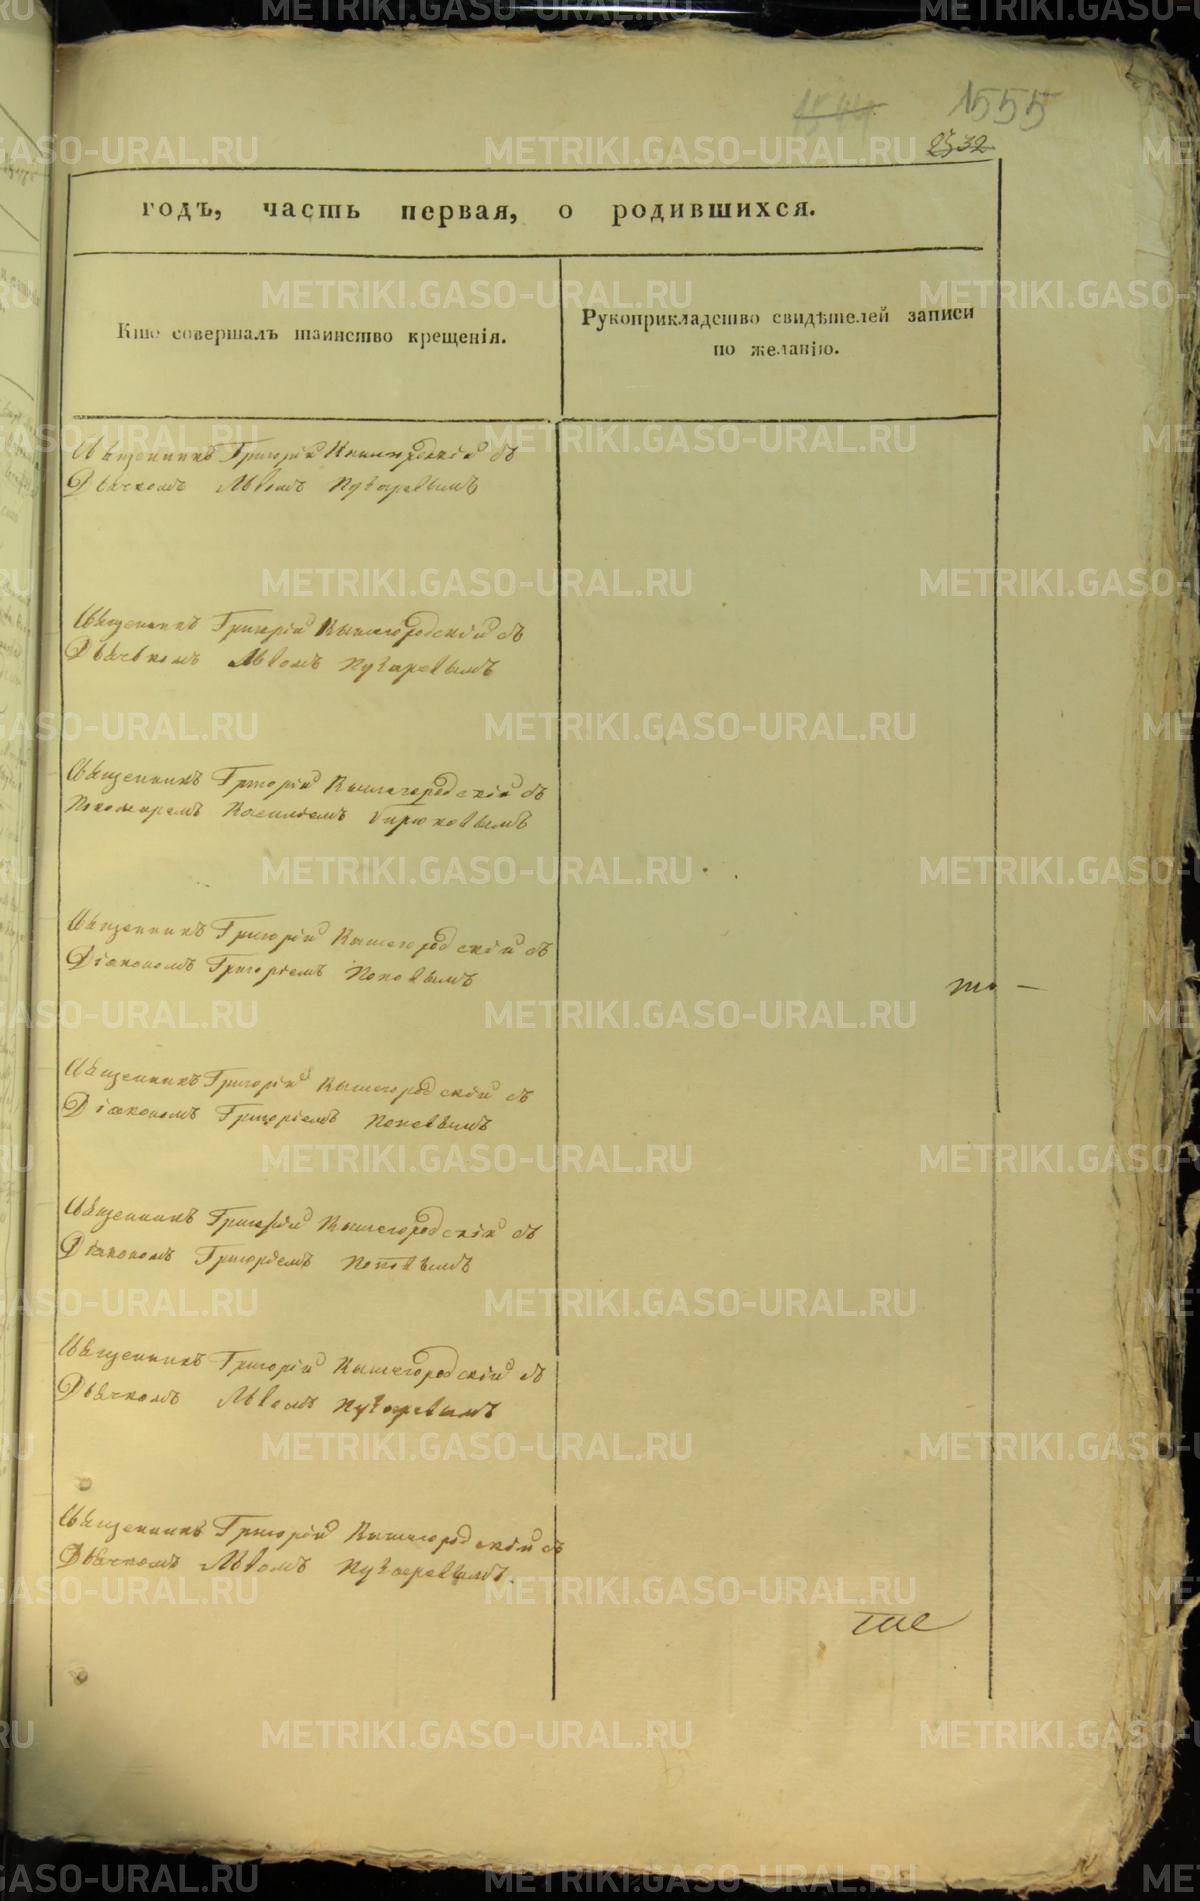 1555
2532
годъ, часть первая, о родившихся.
Кто совершалъ таинство крещенія.
Рукоприкладство свидѣтелей записи
по желанію.
Священникъ Григорій Вышегородскій съ
Дьячкомъ Львомъ Пузыревымъ
Священникъ Григорій Вышегородскій съ
Дьячкомъ Львомъ Пузыревымъ
Священникъ Григорій Вышегородскій съ
Пономаремъ Василіемъ Бирюковымъ
Священникъ Григорій Вышегородскій съ
Діакономъ Григоріемъ Поповымъ
Священникъ Григорій Вышегородскій съ
Діакономъ Григоріемъ Поповымъ
Священникъ Григорій Вышегородскій съ
Діакономъ Григоріемъ Поповымъ
Священникъ Григорій Вышегородскій съ
Дьячкомъ Львомъ Пузыревымъ
Священникъ Григорій Вышегородскій съ
Дьячкомъ Львомъ Пузыревымъ.
METRIKI.GASO-URAL.RU